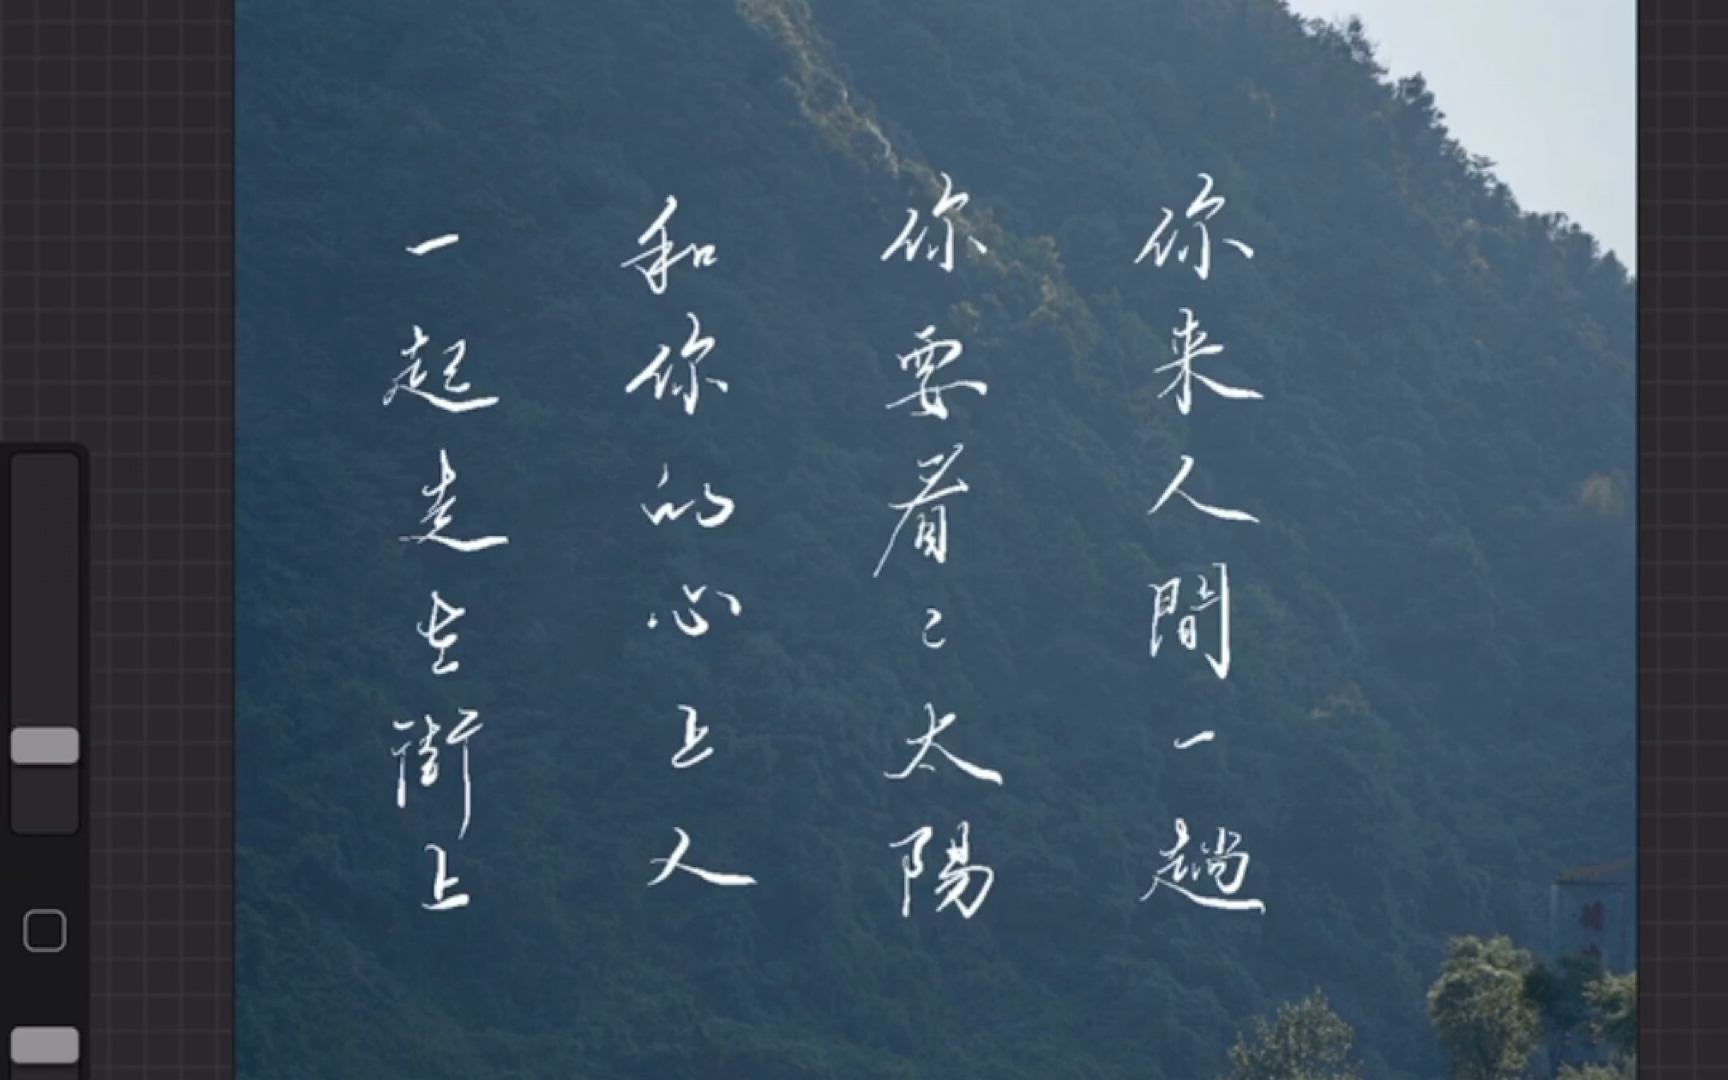 你来人間一趟
你要看〻太陽
和你的心上人
一起走在街上